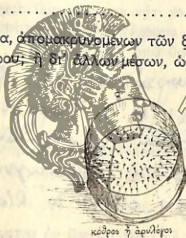 α, ἀπομακρυνομένων τῶν ξ
ρου; ἢ δι' ἄλλων μέσων, ὡ
κόθρος ἢ ἀρυλόγος